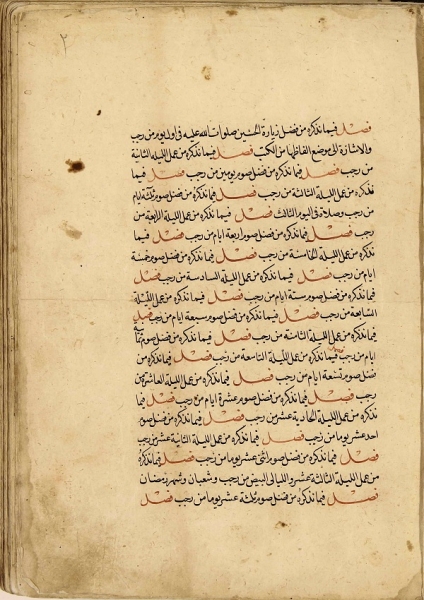 ٢
فصل فيما نذكره من فضل زيارة الحسين صلوات الله عليه فى اول يوم من رجب
والاشارة الى موضع الفاظها من الكتب فصل فيما نذكره من عمل الليلة الثانية
من رجب فصل فيما نذكره من فضل صوم يومين من رجب فصل فيما
نذكره من عمل الليلة الثالثة من رجب فصل فيما نذكره من فضل صوم ثلثة ايام
من رجب وصلاة فى اليوم الثالث فصل فيما نذكره من عمل الليلة الرابعة من
رجب فصل فيما نذكره من فضل صوم اربعة ايام من رجب فصل فيما
نذكره من عمل الليلة الخامسة من رجب فصل فيما نذكره من فضل صوم خمسة
ايام من رجب فصل فيما نذكره من عمل الليلة السادسة من رجب فصل
فيما نذكره من فضل صوم ستة ايام من رجب فصل فيما نذكره من عمل الليلة
السابعة من رجب فصل فيما نذكره من فضل صوم سبعة ايام من رجب فصل
فيما نذكره من عمل الليلة الثامنة من رجب فصل فيما نذكره من فضل صوم ثمانية
ايام من رجب فصل فيما نذكره من عمل الليلة التاسعة من رجب فصل فيما نذكره من
فضل صوم تسعة ايام من رجب فصل فيما نذكره من عمل الليلة العاشرة من
رجب فصل فيما نذكره من فضل صوم عشرة ايام من رجب فصل فيما
نذكره من عمل الليلة الحادية عشر من رجب فصل فيما نذكره من فضل صوم
احد عشر يوما من رجب فصل فيما نذكره من عمل الليلة الثانية عشر من رجب
فصل فيما نذكره من فضل صوم اثنى عشر يوما من رجب فصل فيما نذكره
من عمل الليلة الثالثة عشر والليالى البيض من رجب وشعبان وشهر رمضان
فصل فيما نذكره من فضل صوم ثلثة عشر يوما من رجب فصل